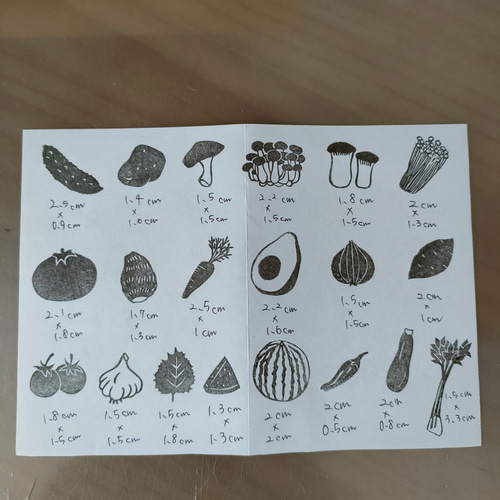 2.9cm
×
0.9cm
1.4cm
×
1.0cm
1.5cm
×
1.5cm
2.2cm
×
1.5cm
1.8cm
×
1.5cm
2cm
×
1.3cm
2.1cm
×
1.8cm
1.7cm
×
1.3cm
2.5cm
×
1cm
2.2cm
×
1.6cm
1.5cm
×
1.5cm
2cm
×
1cm
1.8cm
×
1.5cm
1.5cm
×
1.5cm
1.5cm
×
1.8cm
1.3cm
×
1.3cm
2cm
×
2cm
2cm
×
0.5cm
2cm
×
0.8cm
1.5cm
×
3.3cm